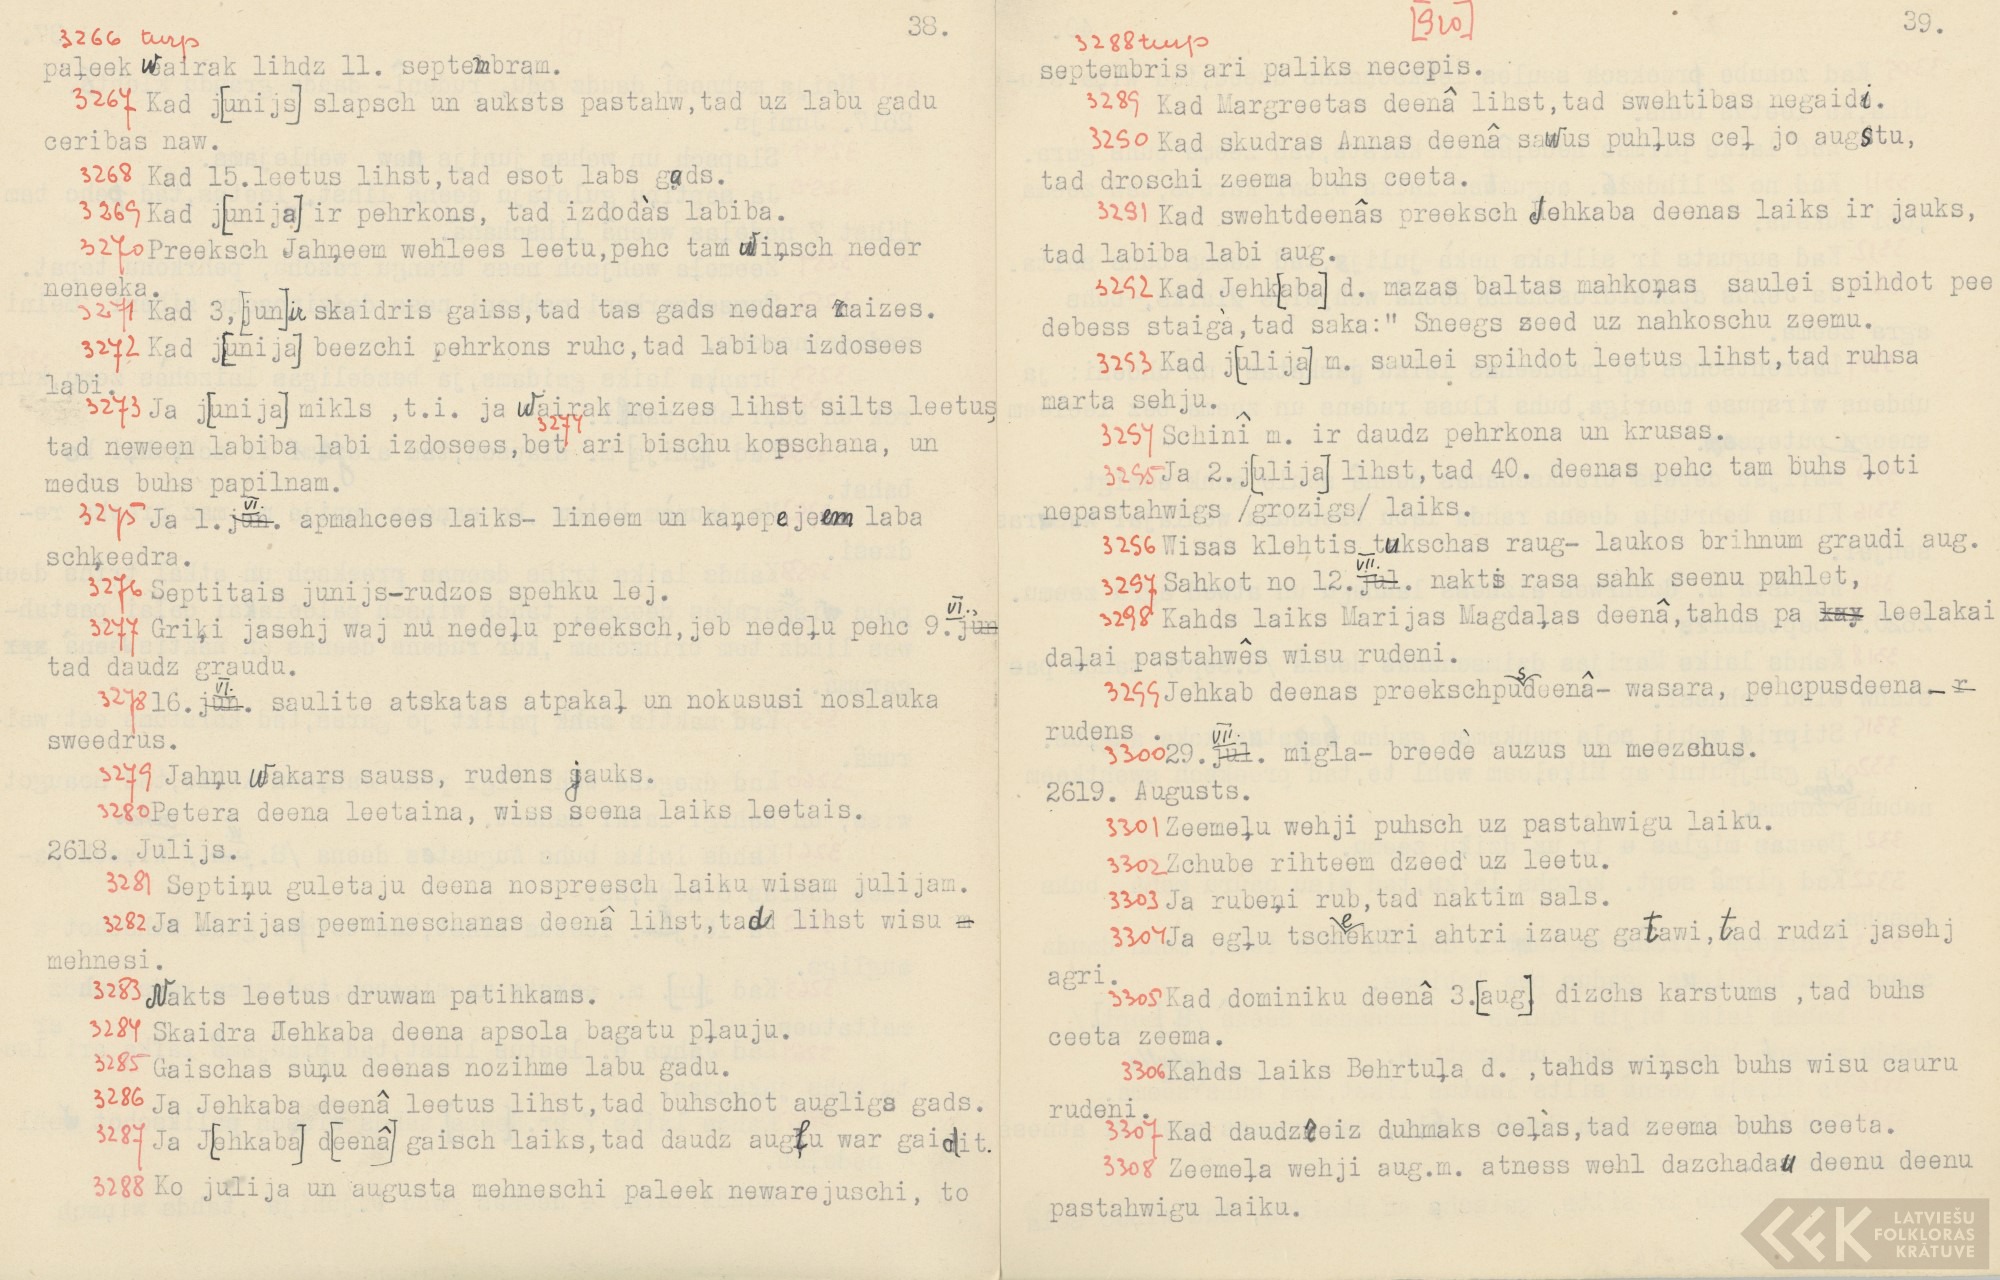 38.
3266 turp
paļeek wairak lihdz 11. septembram.
3267 Kad j[unijs] slapsch un auksts pastahw,tad uz labu gadu
ceribas naw.
3268 Kad 15.leetus lihst,tad esot labs gads.
3269 Kad j[unija] ir pehrkons, tad izdodàs labiba.
3270 Preeksch Jahņeem wehlees leetu,pehc tam wiņsch neder
neneeka.
3271 Kad 3,[jun] ir skaidris gaiss,tad tas gads nedara raizes.
3272 Kad j[unija] beezchi pehrkons ruhc,tad labiba izdosees
labi.
3273 Ja j[unija] mikls ,t.i. ja wairak reizes lihst silts leetus,
3274
tad neween labiba labi izdosees,bet ari bischu kopschana, un
medus buhs papilnam.
3275 Ja 1. jun. VI. apmahcees laiks- lineem un kaņepejeem laba
schķeedra.
3276 Septitais junijs-rudzos spehku lej.
3277 Griķi jasehj waj nu nedeļu preeksch,jeb nedeļu pehc 9. jun VI.,
tad daudz graudu.
3278 16. jun. VI. saulite atskatas atpakaļ un nokususi noslauka
sweedrus.
3279 Jahņu wakars sauss, rudens jauks.
3280 Petera deena leetaina, wiss seena laiks leetais.
2618. Julijs.
3281 Septiņu guletaju deena nospreesch laiku wisam julijam.
3282 Ja Marijas peemineschanas deenâ lihst,tad lihst wisu m
mehnesi.
3283 Nakts leetus druwam patihkams.
3284 Skaidra Jehkaba deena apsola bagatu pļauju.
3285 Gaischas suņu deenas nozihme labu gadu.
3286 Ja Jehkaba deenâ leetus lihst,tad buhschot augligs gads.
3287 Ja J[ehkaba] d[eenâ] gaisch laiks,tad daudz augļu war gaidit.
3288 Ko julija un augusta mehneschi paleek newarejuschi, to
[910]
39.
3288 turp
septembris ari paliks necepis.
3289 Kad Margreetas deenâ lihst,tad swehtibas negaidi.
3290 Kad skudras Annas deenâ sawus puhļus ceļ jo augstu,
tad droschi zeema buhs ceeta.
3291 Kad swehtdeenâs preeksch Jehkaba deenas laiks ir jauks,
tad labiba labi aug.
3292 Kad Jehk[aba] d. mazas baltas mahkoņas saulei spihdot pee
debess staigà,tad saka:" Sneegs zeed uz nahkoschu zeemu.
3293 Kad j[ulija] m. saulei spihdot leetus lihst,tad ruhsa
marta sehju.
3294 Schinî m. ir daudz pehrkona un krusas.
3295 Ja 2.j[ulija] lihst,tad 40. deenas pehc tam buhs ļoti
nepastahwigs /grozigs/ laiks.
3296 Wisas klehtis tukschas raug- laukos brihnum graudi aug.
3297 Sahkot no 12. jul. VII. naktis rasa sahk seenu puhlet,
3298 Kahds laiks Marijas Magdaļas deenâ,tahds pa kaŗ leelakai
daļai pastahwês wisu rudeni.
3299 Jehkab deenas preekschpusdeenâ- wasara, pehcpusdeena - r
rudens .
3300 29. jul. VII. migla- breedè auzus un meezchus.
2619. Augusts.
3301 Zeemeļu wehji puhsch uz pastahwigu laiku.
3302 Zchube rihteem dzeed uz leetu.
3303 Ja rubeņi rub,tad naktim sals.
3304 Ja egļu tschekuri ahtri izaug gatawi,tad rudzi jasehj
agri.
3305 Kad dominiku deenâ 3.[aug] dizchs karstums ,tad buhs
ceeta zeema.
3306 Kahds laiks Behrtuļa d. ,tahds wiņsch buhs wisu cauru
rudeni.
3307 Kad daudzreiz duhmaks ceļàs,tad zeema buhs ceeta.
3308 Zeemeļa wehji aug.m. atness wehl dazchadau deenu deenu
pastahwigu laiku.
LATVIEŠU
FOLKLORAS
KRĀTUVE